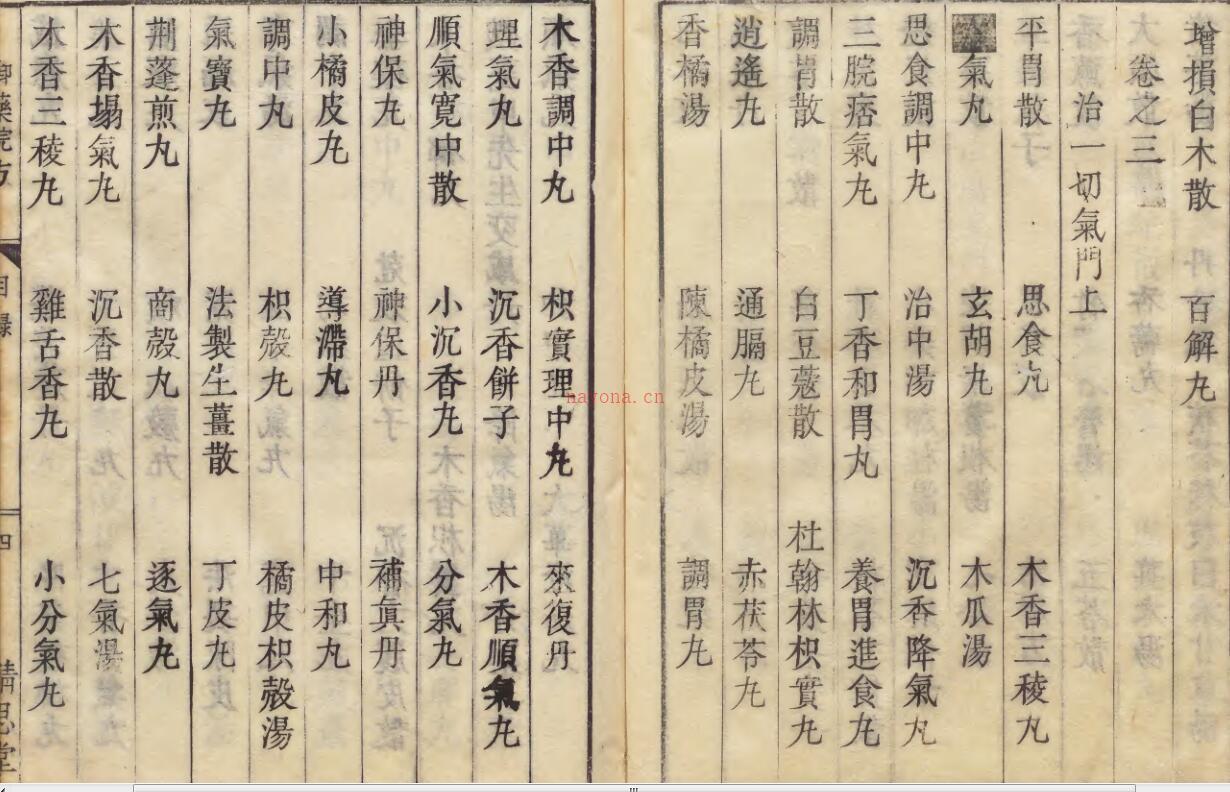 增損白术散　百解丸
卷之三
治一切氣門上
平胃散　思食丸　木香三稜丸
氣丸　玄胡丸　木瓜湯
思食調中丸　治中湯　沉香降氣丸
三脘痞氣丸　丁香和胃丸　養胃進食丸
調胃散　白豆蔻散　杜翰林枳實丸
逍遙丸　通膈丸　赤茯苓丸
香橘湯　陳橘皮湯　調胃丸
木香調中丸　枳實理中丸　來復丹
理氣丸　沉香餅子　木香順氣丸
順氣寬中散　小沉香丸　分氣丸
神保丸　神保丹　補真丹
小橘皮丸　導滯丸　中和丸
調中丸　枳殼丸　橘皮枳殼湯
氣寶丸　法製生薑散　丁皮丸
荆蓬煎丸　商殼丸　逐氣丸
木香塌氣丸　沉香散　七氣湯
木香三稜丸　雞舌香丸　小分氣丸
御藥院方　目錄　四　精思堂
nayona.cn